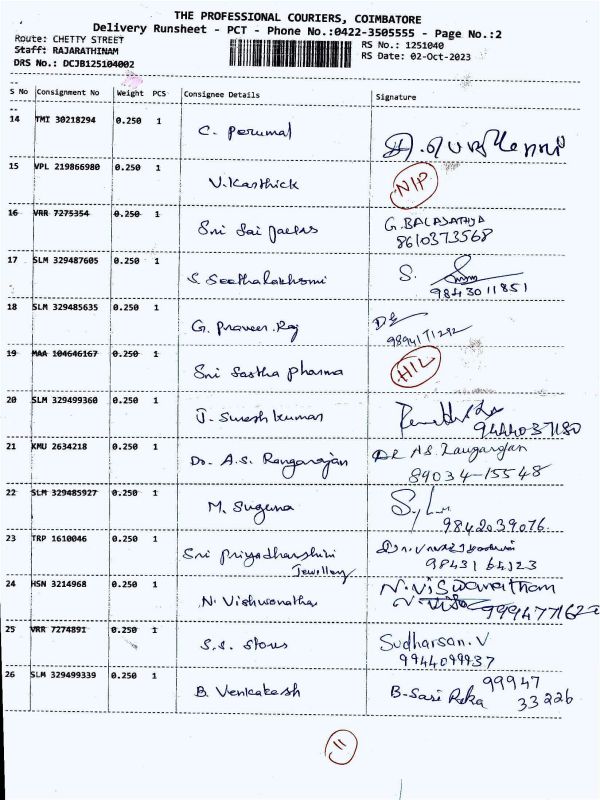 THE PROFESSIONAL COURIERS, COIMBATORE
Delivery Runsheet - PCT - Phone No.:0422-3505555 - Page No.:2
Route: CHETTY STREET
RS No.: 1251040
Staff: RAJARATHINAM
RS Date: 02-Oct-2023
DRS No.: DCJB125104002
S No Consignment No Weight PCS Consignee Details Signature
14 TMI 30218294 0.250 1 C. Perumal
15 VPL 219866980 0.250 1 V. Karthick NIP
16 VRR 7275354 0.250 1 Sri Sai Jaeers G. BALASATHYA
8610373568
17 SLM 329487605 0.250 1 S. Seethalakshmi S.
9843011851
18 SLM 329485635 0.250 1 G. Praveen Raj
19 MAA 104646167 0.250 1 Sri Sastha pharma H1L
20 SLM 329499360 0.250 1 J. Sureshkumar
9444037180
21 KMU 2634218 0.250 1 Dr. A.S. Rangarajan DR AS
89034-15548
22 SLM 329485927 0.250 1 M. Suguna
9842039076
23 TRP 1610046 0.250 1 Sri Priyadharshini
Jewellery
24 HSN 3214968 0.250 1 N. Vishwanatha N. Viswanathan
25 VRR 7274891 0.250 1 S.S. Stores Sudharsan. V
9944099937
26 SLM 329499339 0.250 1 B. Venkakesh B. Sasi Reka 99947
33226
11